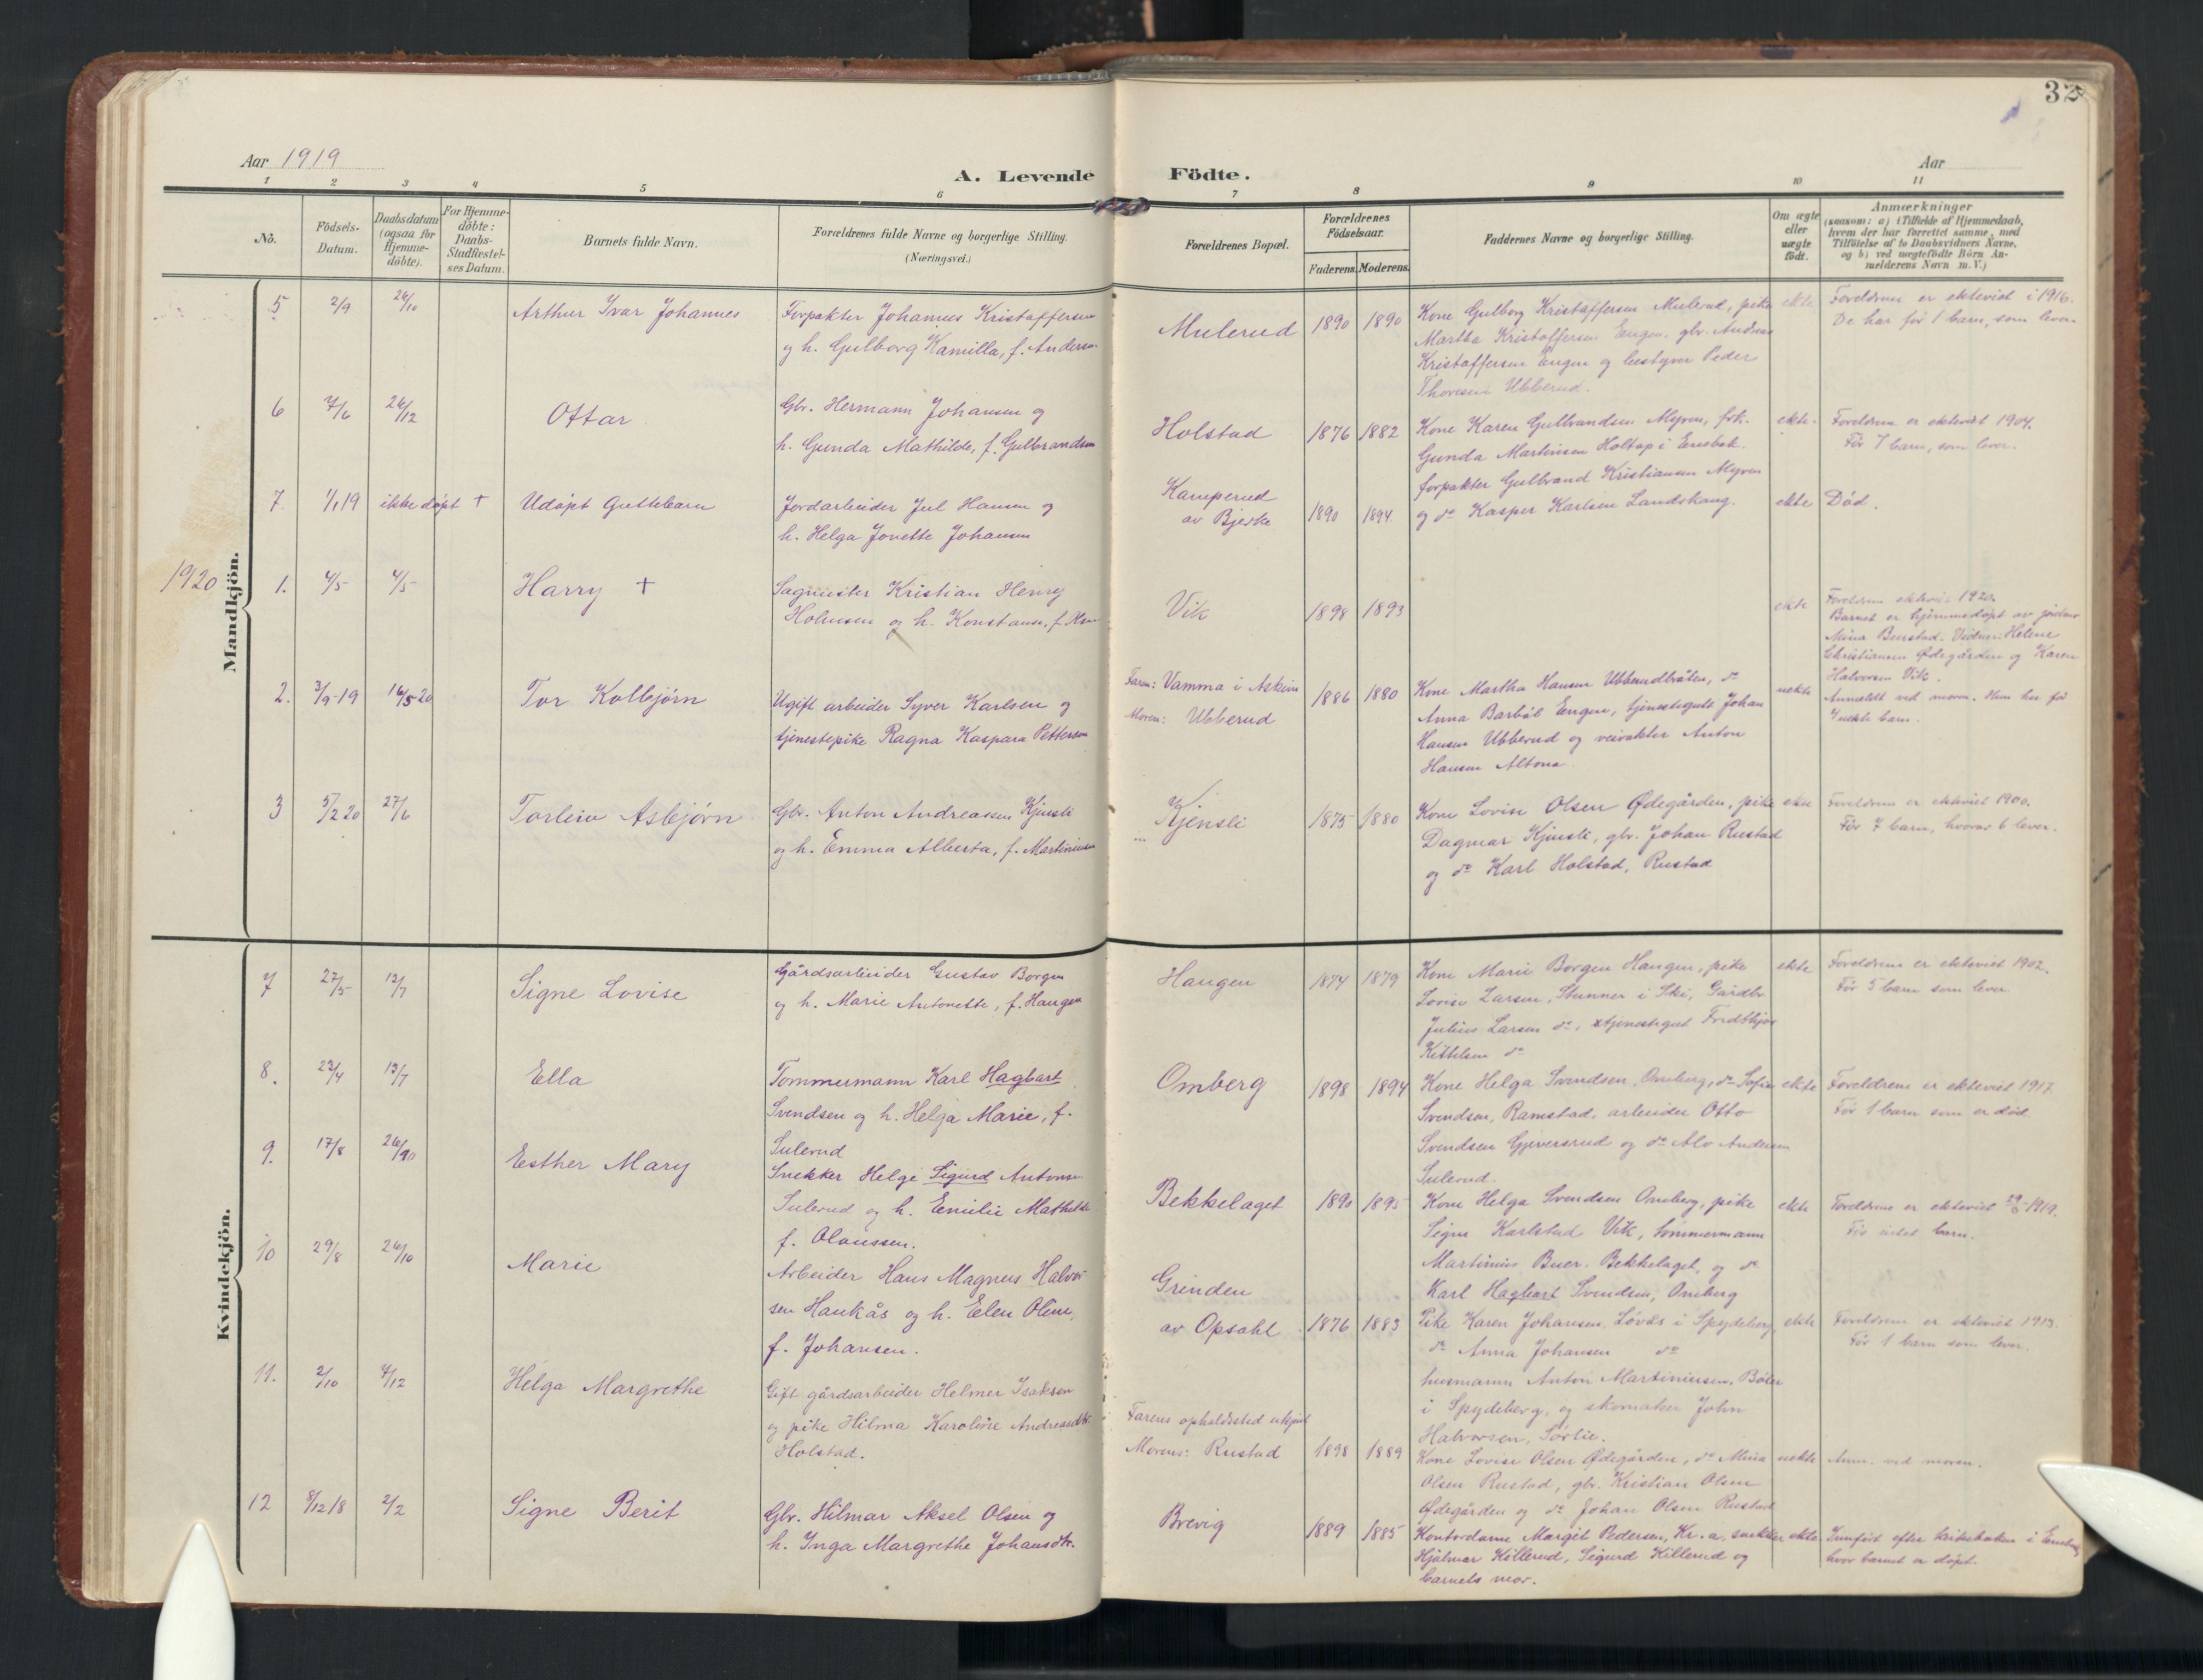 32
Aar 1919
A. Levende Födte.
Aar
1 2 3 4 5 6 7 8 9 10 11
No.
Födsels-
Datum.
Daabsdatum
(ogsaa for
Hjemme-
döbte).
For Hjemme-
döbte:
Daabs-
Stadfæstel-
ses Datum.
Barnets fulde Navn.
Forældrenes fulde Navne og borgerlige Stilling.
(Næringsvei.)
Forældrenes Bopæl.
Forældrenes
Födselsaar.
Faderens. Moderens.
Faddernes Navne og borgerlige Stilling.
Om ægte
eller
uægte
födt.
Anmærkninger
(saasom: a) i Tilfælde af Hjemmedaab,
hvem der har forrettet samme, med
Tilföielse af to Daabsvidners Navne,
og b) ved uægtefödte Börn An-
melderens Navn m. V.)
Mandkjön.
5 2/9 26/10 Arthur Ivar Johannes
Forpakter Johannes Kristoffersen
og h. Gulborg Kamilla, f. Andersen
Mulerud 1890 1890
Kone Gulborg Kristoffersen Mulerud, pike
Martha Kristoffersen Engen, gbr. Andreas
Kristoffersen Engen og bestyrer Peder
Thoresen Ubberud.
ekte
Foreldrene er ekteviet i 1916.
De har før 1 barn, som lever.
6 7/6 26/12 Ottar
Gbr. Hermann Johansen og
h. Gunda Mathilde, f. Gulbrandsen
Holstad 1876 1882
Kone Karen Gulbrandsen Myren, frk.
Gunda Martinsen Holtop i Enebak.
forpakter Gulbrand Kristiansen Myren
og do Kasper Karlsen Landskaug.
ekte.
Foreldrene er ektevidt 1904.
Før 7 barn, som lever.
7. 1/1 19 ikke døpt + Udøpt Guttebarn
Jordarbeider Jul Hansen og
h. Helga Jonette Johansen
Kamperud
av Bjerke
1890 1894
ekte
Død.
1920
1. 4/5 4/5 Harry +
Sagmester Kristian Henry
Holmsen og h. Konstanse, f.
Vik 1898 1893
ekte
Foreldrene ektevi 1920.
Barnet er hjemmedøpt av jordmor
Mina Burstad. Vidner: Helene
Christiansen Ødegården og Karen
Halvorsen Vik.
2. 3/9-19 16/5 20 Tor Kolbjørn
Ugift arbeider Syver Karlsen og
tjenestepike Ragna Kaspara Pettersen
Faren: Vamma i Askim
Moren: Ubberud
1886 1880
Kone Martha Hansen Ubberudbråten, do
Anna Barbøl Engen, tjenestegutt Johan
Hansen Ubberud og veivokter Anton
Hansen Altona.
uekte
Anmeldt ved moren. Hun har før
uekte barn.
3 5/2 20 27/6 Torleiv Asbjørn
Gbr. Anton Andreassen Kjensli
og h. Emma Alberta, f. Martiniussen
Kjensli 1875 1880
Kone Lovise Olsen Ødegården, pike
Dagmar Kjensli, gbr. Johan Rustad
og do Karl Holstad, Rustad
ekte
Foreldrene er ekteviet 1900.
Før 7 barn, hvorav 6 lever.
Kvindekjön.
7 27/5 13/7 Signe Lovise
Gårdsarbeider Gustav Borgen
og h. Marie Antonette, f. Haugen
Haugen 1874 1879
Kone Marie Borgen Haugen, pike
Lovise Larsen, Stunner i Ski, Gårdbr.
Julius Larsen do, tjenestegut Fridthjov
Kittelsen do
ekte
Foreldrene er ekteviet 1902.
Før 5 barn som lever
8. 22/4 13/7 Ella
Tømmermann Karl Hagbart
Svendsen og h. Helga Marie, f.
Sulerud
Omberg 1898 1894
Kone Helga Svendsen, Omberg, do Sofie
Svendsen, Ramstad, arbeider Otto
Svendsen Gjeversrud og do Alv Andersen
Sulerud.
ekte
Foreldrene er ekteviet 1917.
Før 1 barn som er død
9. 17/8 26/10 Esther Mary
Snekker Helge Sigurd Antonsen
Sulerud og h. Emilie Mathilde
f. Olaussen.
Bekkelaget 1890 1895
Kone Helga Svendsen Omberg, pike
Signe Karlstad Vik, tømmermann
Martinius Buer, Bekkelaget, og do
Karl Hagbart Svendsen, Omberg
ekte
Foreldrene er ekteviet 1919.
Før intet barn.
10 29/8 26/10 Marie
Arbeider Hans Magnus Halvor-
sen Haukås og h. Elen Oline,
f. Johansen.
Grinden
av Opsahl
1876 1883
Pike Karen Johansen, Løvås i Spydeberg,
do Anna Johansen do
husmann Anton Martiniusen, Bøler
i Spydeberg, og skomaker John
Halvorsen, Sørlie.
ekte
Foreldrene er ekteviet 1913.
Før 1 barn som lever.
11. 2/10 7/12 Helga Margrethe
Gift gårdsarbeider Helmer Isaksen
og pike Hilma Karoline Andreasdtr.
Holstad.
Farens opholdssted ukjent
Morens: Rustad
1898 1889
Kone Lovise Olsen Ødegården, do Mina
Olsen Rustad, gbr. Kristian Olsen
Ødegården og do Johan Olsen Rustad
uekte
Anm. ved moren.
12 8/12 18 2/2 Signe Berit
Gbr. Hilmar Aksel Olsen og
h. Inga Margrethe Johansdtr.
Brevig 1889 1885
Kontordame Margit Pedersen, Kr.a, snekker
Hjalmar Killerud, Sigurd Killerud og
barnets mor.
ekte
Innført efter kirkeboken i Enebak,
hvor barnet er døpt.